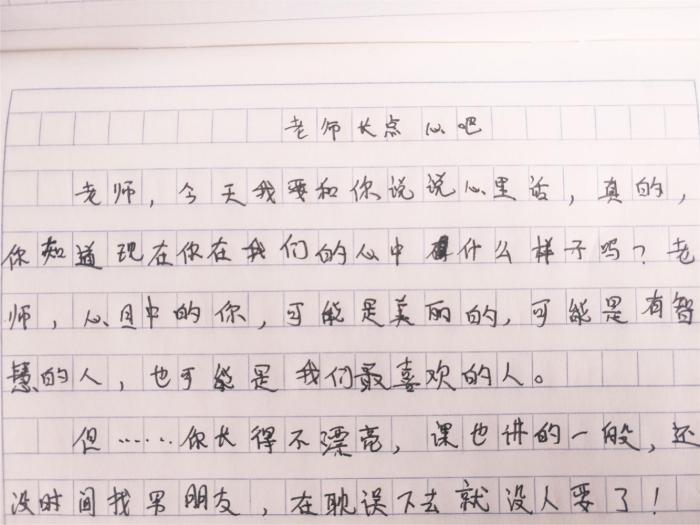 老师长点心吧
老师，今天我要和你说说心里话，真的，
你知道现在你在我们的心中是什么样子吗？老
师，心目中的你，可能是美丽的，可能是有智
慧的人，也可能是我们最喜欢的人。
但……你长得不漂亮，课也讲的一般，还
没时间找男朋友，在耽误下去就没人要了！